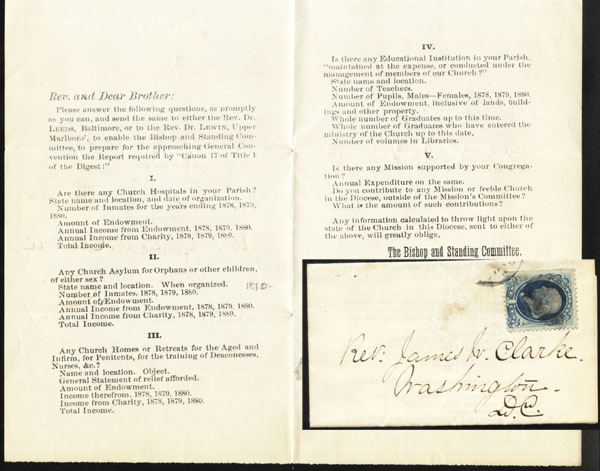 Rev. and Dear Brother:
Please answer the following questions, as promptly
as you can, and send the same to either the Rev. Dr.
LEEDS, Baltimore, or to the Rev. Dr. LEWIN, Upper
Marlboro', to enable the Bishop and Standing Com-
mittee, to prepare for the approaching General Con-
vention the Report required by "Canon 17 of Title 1
of the Digest:"
I.
Are there any Church Hospitals in your Parish?
State name and location, and date of organization.
Number of Inmates for the years ending 1878, 1879,
1880.
Amount of Endowment.
Annual Income from Endowment, 1878, 1879, 1880.
Annual Income from Charity, 1878, 1879, 1880.
Total Income.
II.
Any Church Asylum for Orphans or other children,
of either sex?
State name and location. When organized.
Number of Inmates, 1878, 1879, 1880.
Amount of Endowment.
Annual Income from Endowment, 1878, 1879, 1880.
Annual Income from Charity, 1878, 1879, 1880.
Total Income.
III.
Any Church Homes or Retreats for the Aged and
Infirm, for Penitents, for the training of Deaconesses,
Nurses, &c.?
Name and location. Object.
General Statement of relief afforded.
Amount of Endowment.
Income therefrom, 1878, 1879, 1880.
Income from Charity, 1878, 1879, 1880.
Total Income.
IV.
Is there any Educational Institution in your Parish,
"maintained at the expense, or conducted under the
management of members of our Church?"
State name and location.
Number of Teachers.
Number of Pupils, Males—Females, 1878, 1879, 1880.
Amount of Endowment, inclusive of lands, build-
ings and other property.
Whole number of Graduates up to this time.
Whole number of Graduates who have entered the
ministry of the Church up to this date.
Number of volumes in Libraries.
V.
Is there any Mission supported by your Congrega-
tion?
Annual Expenditure on the same.
Do you contribute to any Mission or feeble Church
in the Diocese, outside of the Mission's Committee?
What is the amount of such contributions?
Any information calculated to throw light upon the
state of the Church in this Diocese, sent to either of
the above, will greatly oblige,
The Bishop and Standing Committee.
Rev: James W. Clarke.
Washington
D.C.